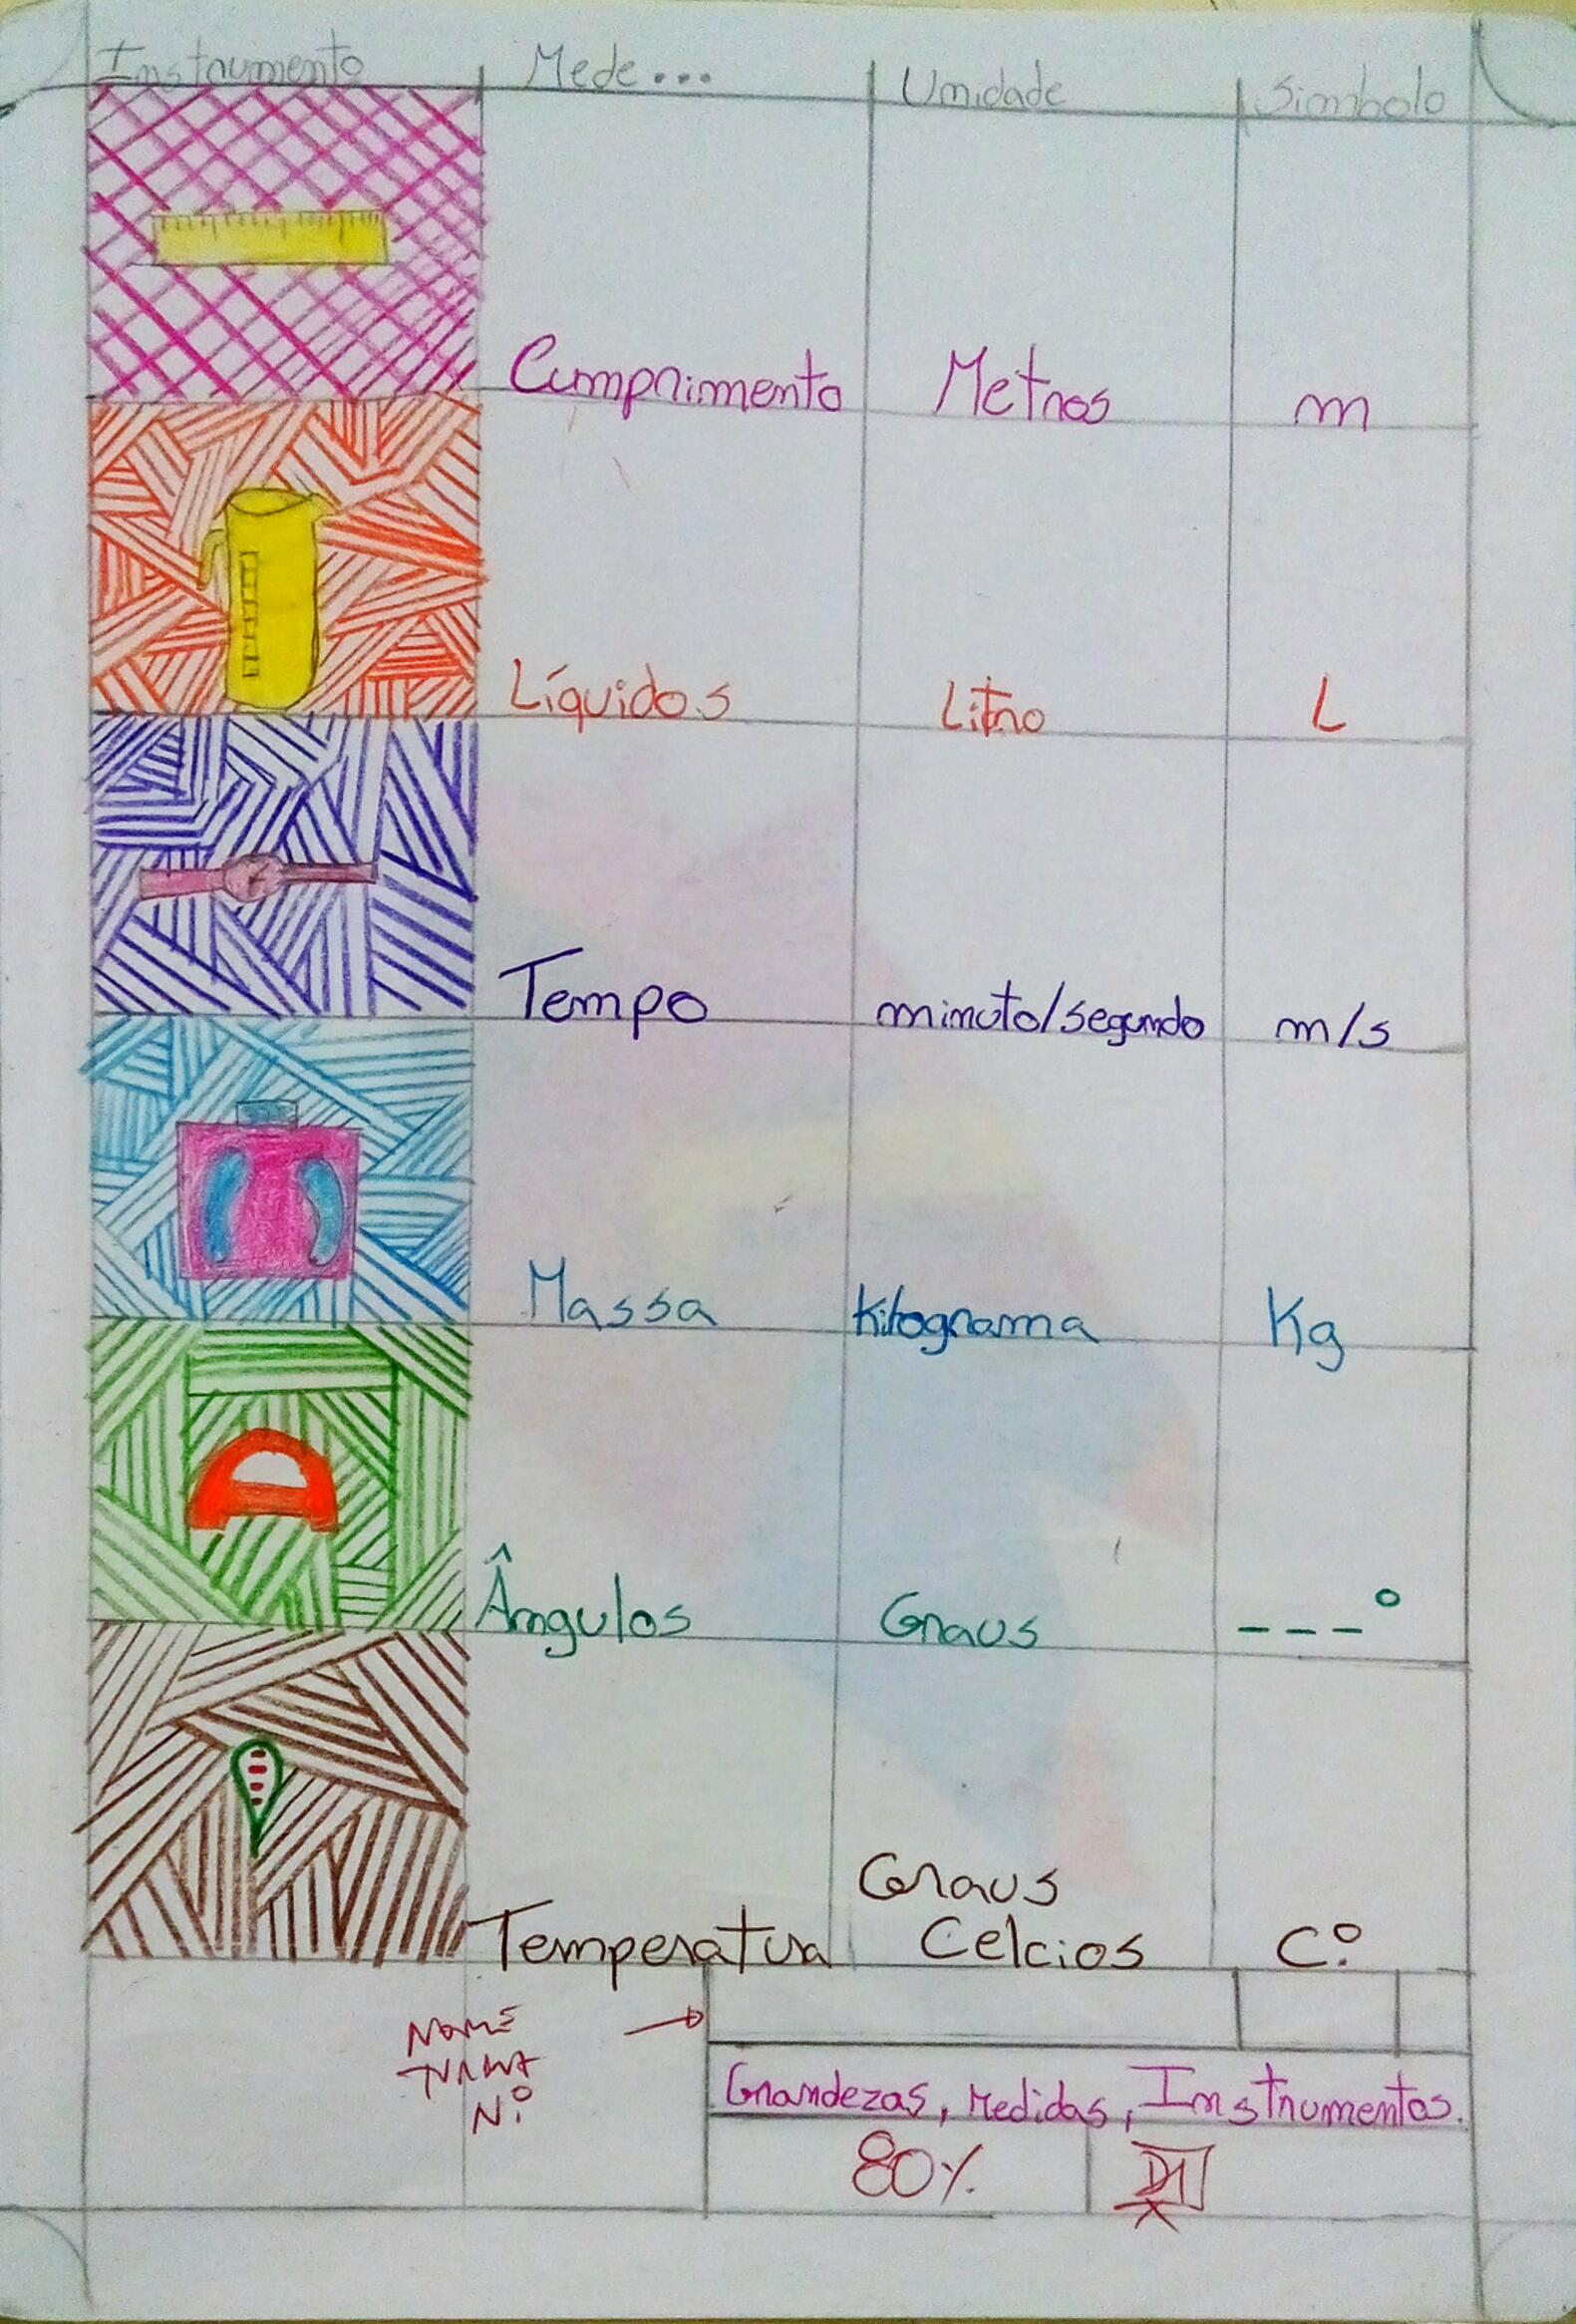 Instrumento Mede... Unidade Siombolo
Cumprimento Metros m
Líquidos Litro L
Tempo minuto/segundo m/s
Massa Kilograma Kg
Ângulos Graus ---°
Temperatura Graus Celcios Cº
NOME
TURMA
Nº
Grandezas, Medidas, Instrumentos.
80%